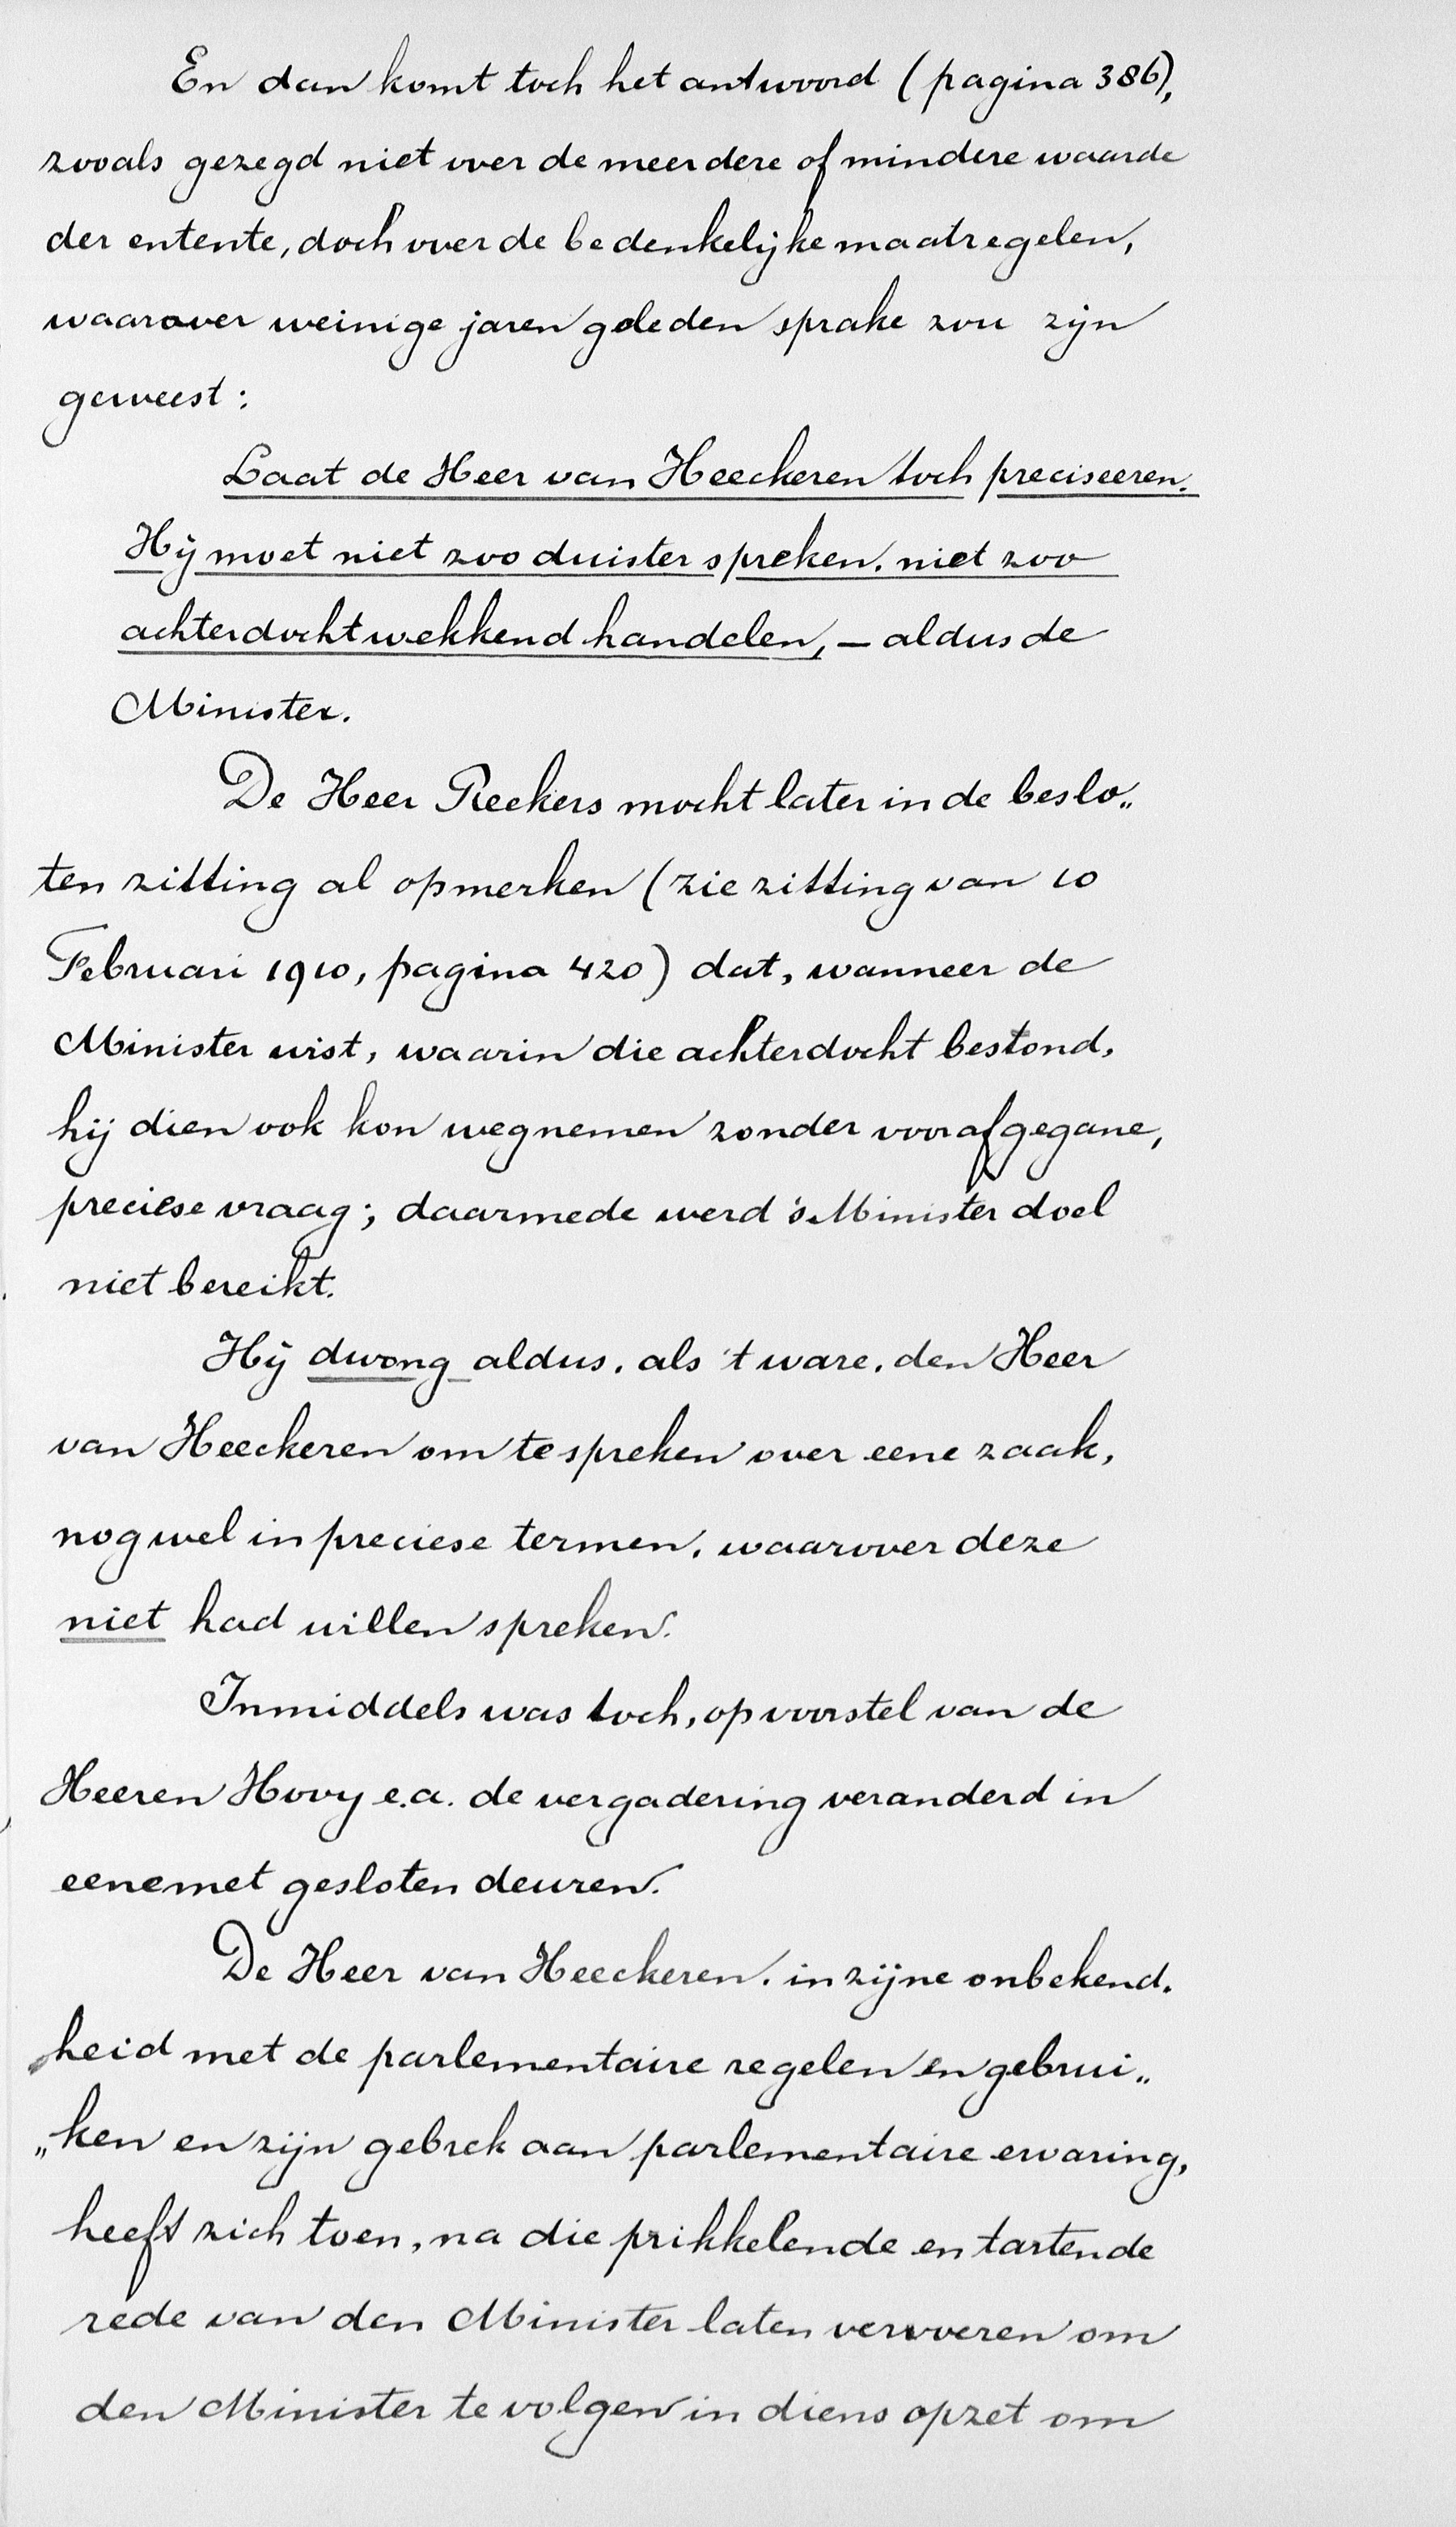 En dan komt toch het antwoord (pagina 386),
zooals gezegd niet over de meerdere of mindere waarde
der entente, doch over de bedenkelijke maatregelen,
waarover weinige jaren geleden sprake zou zijn
geweest:
Laat de Heer van Heeckeren toch preciseeren.
Hij moet niet zoo duister spreken, niet zoo
achterdochtwekkend handelen, – aldus de
Minister.
De Heer Reekers mocht later in de beslo„
ten zitting al opmerken (zie zitting van 10
Februari 1910, pagina 420) dat, wanneer de
Minister wist, waarin die achterdocht bestond,
hij dien ook kon wegnemen zonder voorafgegane,
preciese vraag; daarmede werd 's Minister doel
niet bereikt.
Hij dwong aldus, als 't ware, den Heer
van Heeckeren om te spreken over eene zaak,
nog wel in preciese termen, waarover deze
niet had willen spreken.
Inmiddels was toch, op voorstel van de
Heeren Hovy e.a. de vergadering veranderd in
eene met gesloten deuren.
De Heer van Heeckeren, in zijne onbekend„
„heid met de parlementaire regelen en gebrui„
„ken en zijn gebrek aan parlementaire ervaring,
heeft zich toen, na die prikkelende en tartende
rede van den Minister laten vervoeren om
den Minister te volgen in diens opzet om